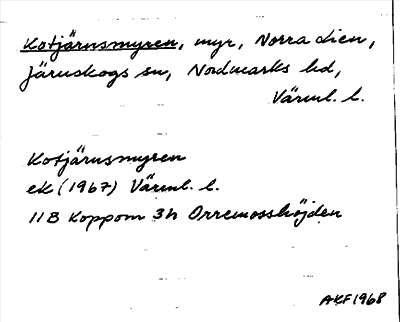 Kotjärnsmyren, myr, Norra Lien,
Järnskogs sn, Nordmarks hd,
Värml. l.
Kotjärnsmyren
ek (1967) Värml. l.
11B Koppom 3h Orremosshöjden
AKF1968